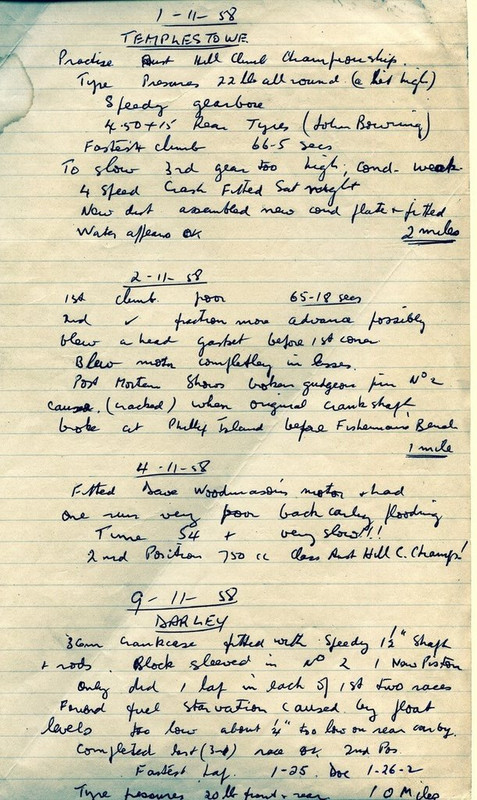 1-11-58
TEMPLESTOWE
Practise Aust Hill Climb Championship
Type Presures 22 lb all round (a bit high)
Speedy gearbox
4.50 + 15 Rear Tyres (John Bowring)
Fastest climb 66-5 secs
To slow 3rd gear too high; Cond- weak
4 Speed Crash Fitted Sat night
New dist assembled new cond plate + fitted
Water appears OK 2 miles
2-11-58
1st climb poor 65-18 secs
2nd ✓ fraction more advance possibly
blew a head gasket before 1st corner
Blew motor completley in esses.
Post Mortem Shows broken gudgeon pin No 2
cause (cracked) when original crankshaft
broke at Phillip Island before Fisherman's Bend
1 mile
4-11-58
Fitted Dave Woodmason's motor + head
one run very poor back carby flooding
Time 54 + very slow!!!
2nd Position 750 cc Class Aust Hill C. Champ!
9-11-58
DARLEY
crankcase fitted with Speedy 1½" Shaft
+ rods. Block sleeved in No 2 1 New Piston
Only did 1 lap in each of 1st two races
Found fuel starvation caused by float
levels too low about ¼" too low on rear carby.
Completed last (3rd) race OK 2nd Pos
Fastest Lap. 1-25. 1-26-2
Type pesures 20 lb front + rear 10 Miles